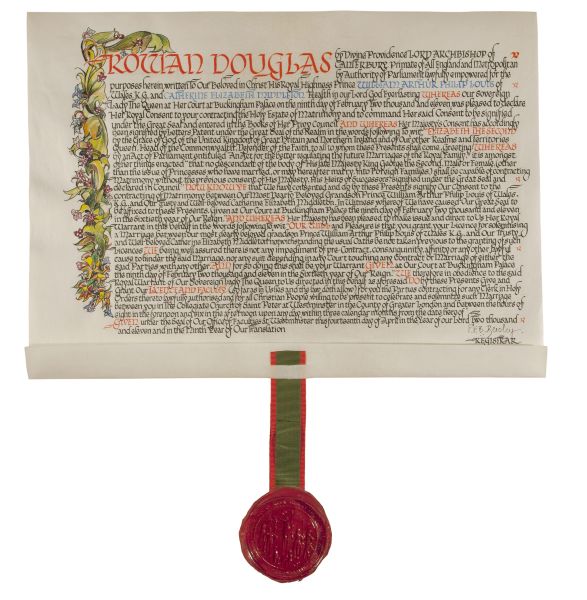 ROWAN DOUGLAS by Divine Providence LORD ARCHBISHOP of
CANTERBURY Primate of All England and Metropolitan
by Authority of Parliament lawfully empowered for the
purposes herein written To Our Beloved in Christ His Royal Highness Prince WILLIAM ARTHUR PHILIP LOUIS of
Wales K.G. and CATHERINE ELIZABETH MIDDLETON Health in our Lord God Everlasting WHEREAS our Sovereign
Lady The Queen at Her Court at Buckingham Palace on the ninth day of February Two thousand and eleven was pleased to declare
Her Royal Consent to your contracting the Holy Estate of Matrimony and to command Her said Consent to be signified
under the Great Seal and entered in the Books of Her Privy Council AND WHEREAS Her Majesty's Consent has accordingly
been signified by Letters Patent under the Great Seal of the Realm in the words following to wit ELIZABETH THE SECOND
by the Grace of God of the United Kingdom of Great Britain and Northern Ireland and of Our other Realms and Territories
Queen Head of the Commonwealth Defender of the Faith, to all to whom these Presents shall come, Greeting WHEREAS
by an Act of Parliament entituled "An Act for the better regulating the future Marriages of the Royal Family" it is amongst
other things enacted "that no descendant of the body of His late Majesty King George the Second, Male or Female, (other
than the issue of Princesses who have married, or may hereafter marry, into Foreign Families) shall be capable of contracting
Matrimony without the previous consent of His Majesty, His Heirs or Successors signified under the Great Seal and
declared in Council" NOW KNOW YE that We have consented and do by these Presents signify Our Consent to the
contracting of Matrimony between Our Most Dearly Beloved Grandson Prince William Arthur Philip Louis of Wales
K.G. and Our Trusty and Well-beloved Catherine Elizabeth Middleton. In Witness whereof We have caused Our Great Seal to
be affixed to these Presents. Given at Our Court at Buckingham Palace the ninth day of February Two thousand and eleven
in the sixtieth year of Our Reign. AND WHEREAS Her Majesty has been pleased to make issue and direct to Us Her Royal
Warrant in this behalf in the Words following to wit OUR WILL and Pleasure is that you grant your Licence for solemnizing
a Marriage between Our most dearly beloved grandson Prince William Arthur Philip Louis of Wales K.G. and Our Trusty
and Well-beloved Catherine Elizabeth Middleton notwithstanding the usual Oaths be not taken previous to the granting of such
Licences WE being well assured there is not any impediment by Pre-Contract, consanguinity affinity or any other lawful
cause to hinder the said Marriage, nor any suit depending in any Court touching any Contract or Marriage of either the
said Parties with any other. AND for so doing this shall be your Warrant GIVEN at Our Court at Buckingham Palace
the ninth day of February Two thousand and eleven in the sixtieth year of Our Reign." WE therefore in obedience to the said
Royal Warrant of Our Sovereign Lady The Queen to Us directed in this behalf as aforesaid DO by these Presents Give and
Grant Our LICENCE AND FACULTY (as far as in Us lies and the law doth allow) for you the Parties contracting for any Clerk in Holy
Orders thereto lawfully authorised and for all Christian People willing to be present to celebrate and solemnize such Marriage
between you in the Collegiate Church of Saint Peter at Westminster in the County of Greater London and between the hours of
eight in the forenoon and six in the afternoon upon any day within three calendar months from the date hereof
GIVEN under the Seal of Our Office of Faculties at Westminster this fourteenth day of April in the Year of Our Lord Two thousand
and eleven and in the Ninth Year of Our Translation
REGISTRAR